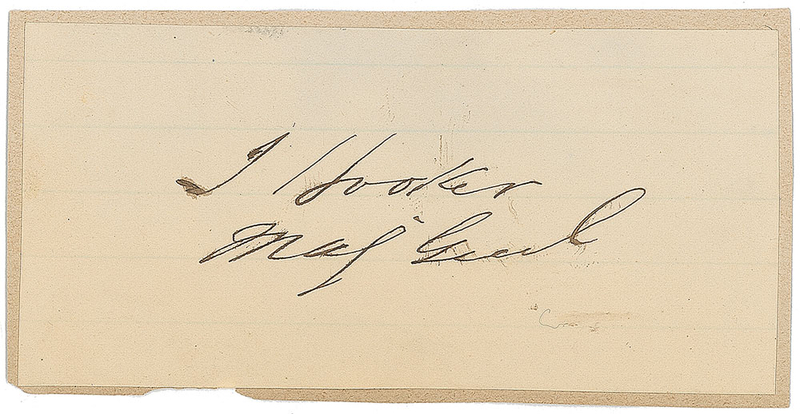 J Hooker
Maj Genl